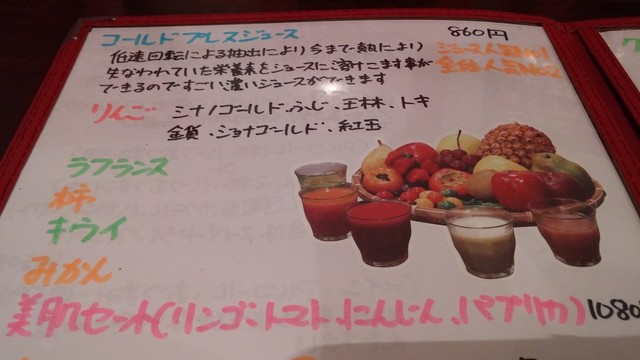 コールドプレスジュース 860円
低速回転による抽出により今まで熱により
失なわれていた栄養素をジュースに溶けこます事が
できるのですごい濃いジュースができます
ジュース人気No1
全体人気No2
りんご シナノゴールド、ふじ、王林、トキ
金賞、ジョナゴールド、紅玉
ラフランス
柿
キウイ
みかん
美肌セット(リンゴ、トマト、にんじん、パプリカ) 1080